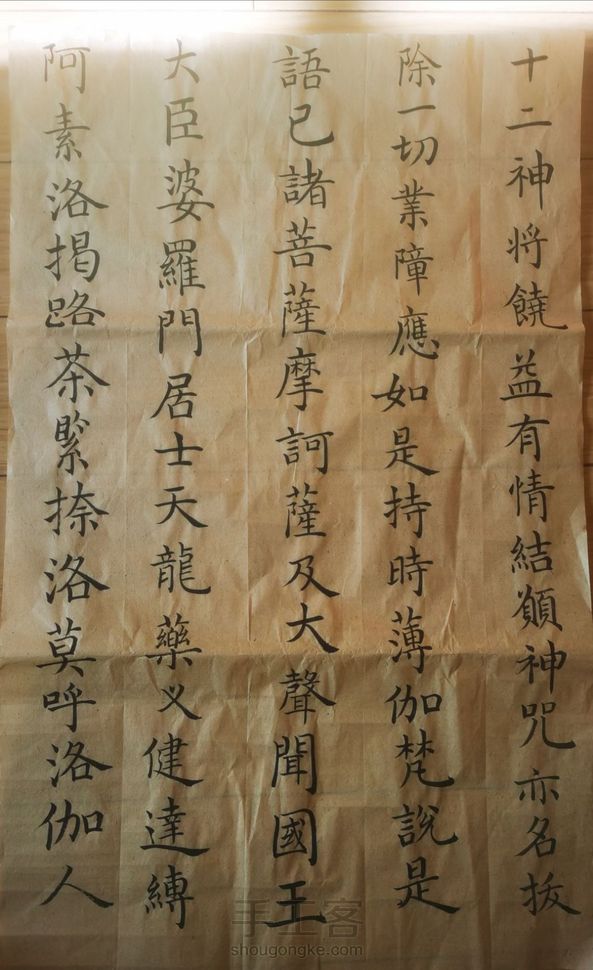 十二神将饒益有情結願神咒亦名拔
除一切業障應如是持時薄伽梵說是
語已諸菩薩摩訶薩及大聲聞國王
大臣婆羅門居士天龍藥义健達縛
阿素洛揭路茶緊捺洛莫呼洛伽人
手工客
shougongke.com